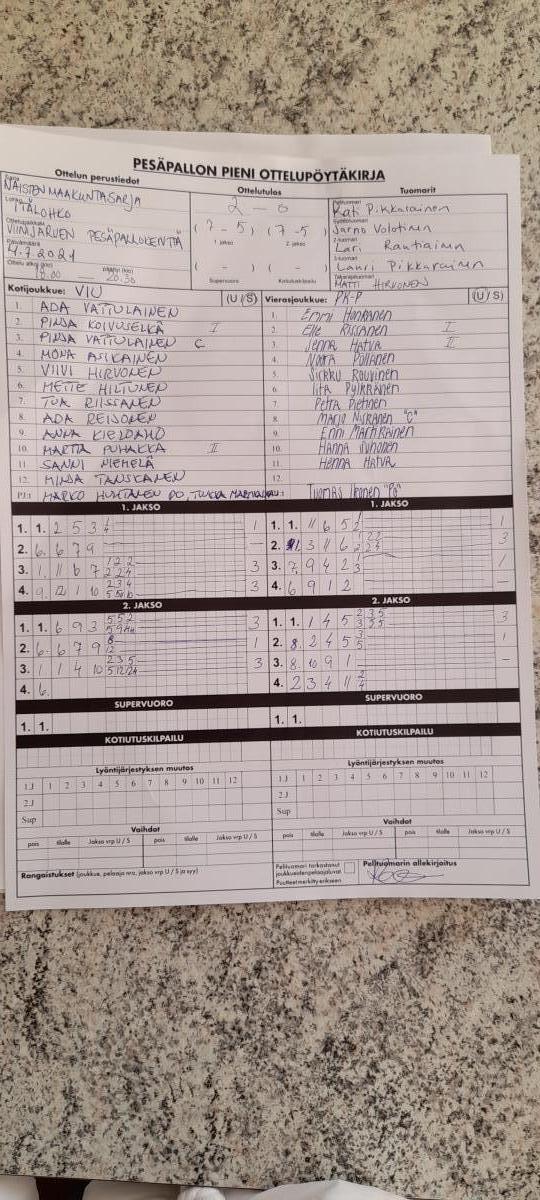 PESÄPALLON PIENI OTTELUPÖYTÄKIRJA
Ottelun perustiedot
Ottelutulos
Tuomarit
Sarja
NAISTEN MAAKUNTASARJA
2 - 0
Pelituomari
Kati Pikkarainen
Lohko
ITÄLOHKO
Syöttötuomari
Jarno Volotinen
Ottelupaikka
VIINIJÄRVEN PESÄPALLOKENTTÄ
(7 - 5) (7 - 5)
1. jakso 2. jakso
2-tuomari
Lari Rautiainen
Päivämäärä
4.7.2021
3-tuomari
Lauri Pikkarainen
Ottelu alkoi (klo) päättyi (klo)
18.00 20.30
( - ) ( - )
Supervuoro Kotiutuskilpailu
Takarajatuomari
MATTI HIRVONEN
Kotijoukkue: VIU (U/S)
1. ADA VATTULAINEN
2. PINJA KOIVUSELKÄ I
3. PINJA VATTULAINEN C
4. MONA ASIKAINEN
5. VIIVI HIRVONEN
6. METTE HILTUNEN
7. TUA RIISSANEN
8. ADA REIJONEN
9. ANNA KIELOAHO
10. MARTTA PUHAKKA II
11. SANNI MEHELÄ
12. MINJA TANSKANEN
PJ: MARKO HUHTANEN PO, TUKKA
Vierasjoukkue: PK-P (U/S)
1. Emmi Honkanen
2. Elle Rissanen I
3. Jenna Hatva II
4. Noora Pulliainen
5. Sirkku Rouvinen
6. Iita Pylkkänen
7. Petra Pietinen
8. Marjo Niskanen "C"
9. Enni Martikainen
10. Hanna Juhonen
11. Henna Hatva
12.
Tuomas Ikonen "PJ"
1. JAKSO
1. 1. 2 5 3 4 1
2. 6. 6 7 9 —
3. 1. 11 6 7 3
4. 9. 12 1 10 3
2. JAKSO
1. 1. 6 9 3 3
2. 6. 6 7 9 1
3. 1 1 4 10 3
4. 6.
SUPERVUORO
1. 1.
KOTIUTUSKILPAILU
1. JAKSO
1. 1. 11 6 5 1
2. 3 11 6 3
3. 7. 9 4 2 3 1
4. 6 9 1 2 —
2. JAKSO
1. 1. 1 4 5 3
2. 8. 2 4 5 1
3. 8. 10 9 1 —
4. 2 3 4 11
SUPERVUORO
1. 1.
KOTIUTUSKILPAILU
Lyöntijärjestyksen muutos
1.J 1 2 3 4 5 6 7 8 9 10 11 12
2.J
Sup
Vaihdot
pois tilalle Jakso vrp U / S pois tilalle Jakso vrp U / S
Lyöntijärjestyksen muutos
1.J 1 2 3 4 5 6 7 8 9 10 11 12
2.J
Sup
Vaihdot
pois tilalle Jakso vrp U / S pois tilalle Jakso vrp U / S
Rangaistukset (joukkue, pelaaja nro, jakso vrp U / S ja syy)
Pelituomari tarkastanut
joukkueiden pelaajaluvat
Puutteet merkitty erikseen
Pelituomarin allekirjoitus